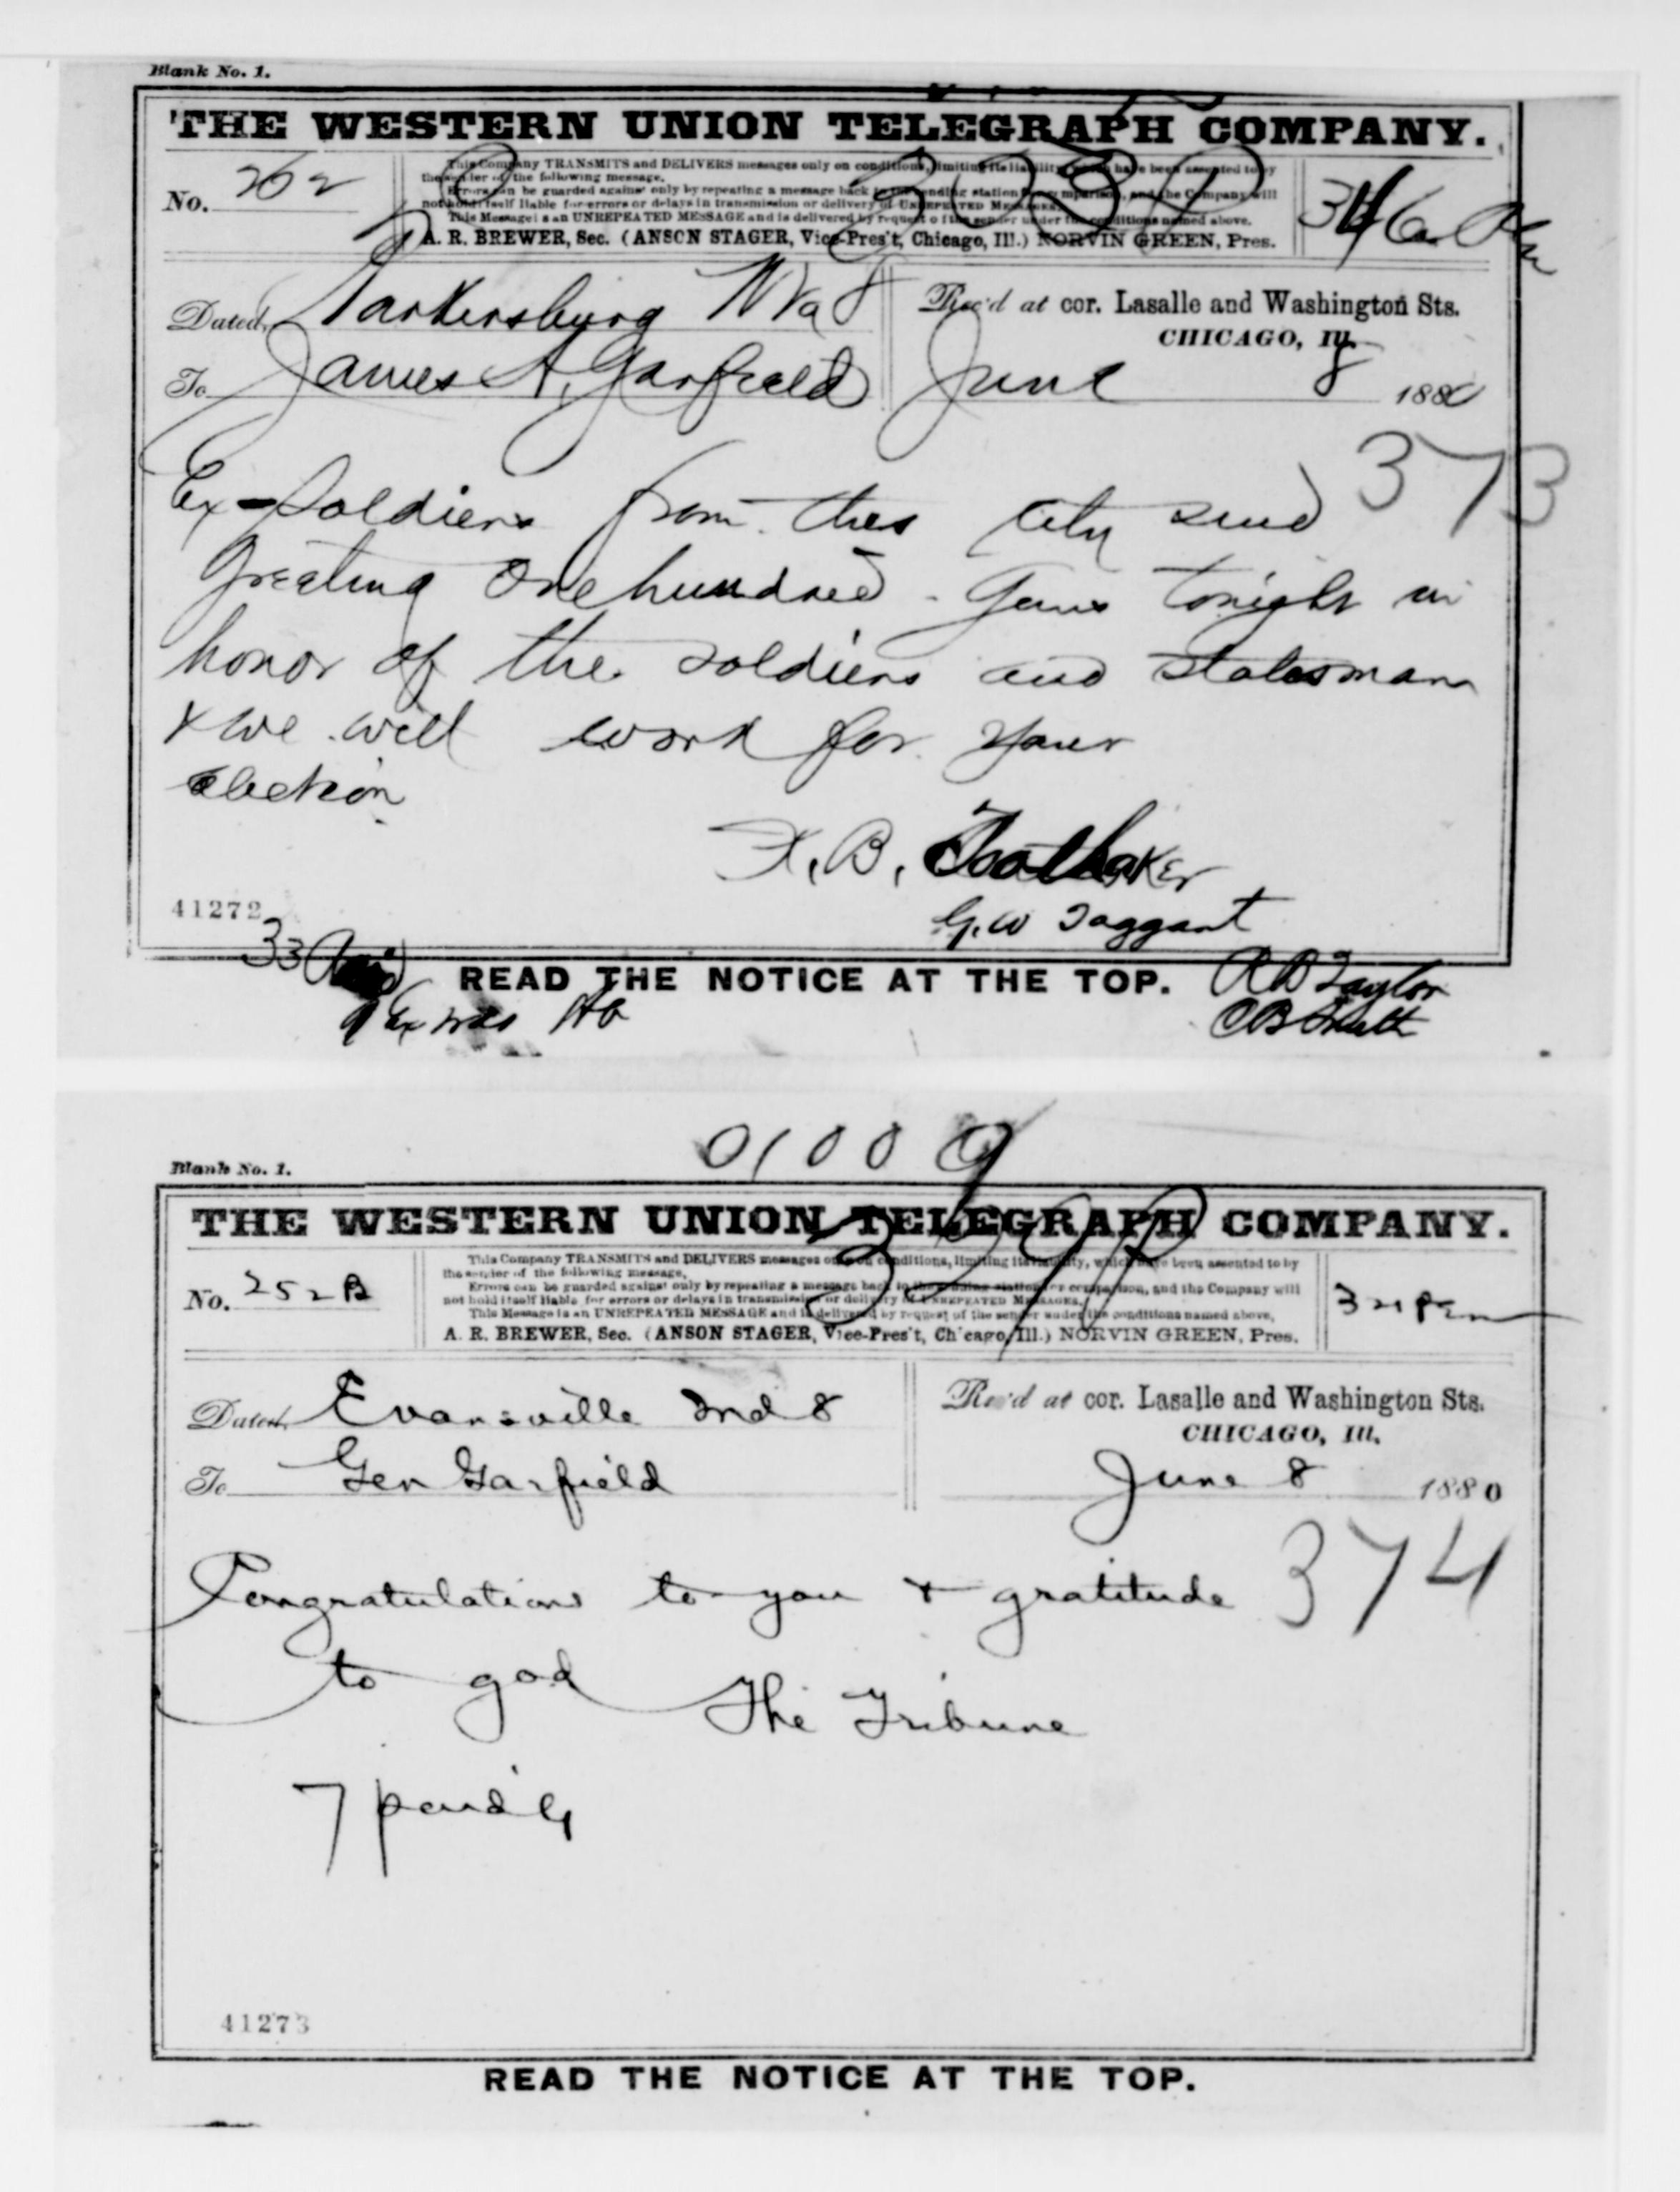 Blank No. 1.
THE WESTERN UNION TELEGRAPH COMPANY.
No. 262
This Company TRANSMITS and DELIVERS messages only on conditions, limiting its liability, which have been assented to by
the sender of the following message.
Errors can be guarded against only by repeating a message back to the sending station for comparison, and the Company will
not hold itself liable for errors or delays in transmission or delivery of UNREPEATED MESSAGES.
This Message is an UNREPEATED MESSAGE and is delivered by request of the sender under the conditions named above.
A. R. BREWER, Sec. (ANSON STAGER, Vice-Pres't, Chicago, Ill.) NORVIN GREEN, Pres.
Dated, Parkersburg W Va 8
Rec'd at cor. Lasalle and Washington Sts.
CHICAGO, Ill.
To James A. Garfield
June 8 1880
373
Ex-Soldiers from this city send
greeting One hundred Guns tonight in
honor of the soldiers and statesman
& we will work for your
election
F. B. Toothaker
G. W Taggart
41272
33
READ THE NOTICE AT THE TOP.
R B Taylor
C B Smith
0100
Blank No. 1.
THE WESTERN UNION TELEGRAPH COMPANY.
No. 252 B
This Company TRANSMITS and DELIVERS messages only on conditions, limiting its liability, which have been assented to by
the sender of the following message.
Errors can be guarded against only by repeating a message back to the sending station for comparison, and the Company will
not hold itself liable for errors or delays in transmission or delivery of UNREPEATED MESSAGES.
This Message is an UNREPEATED MESSAGE and is delivered by request of the sender under the conditions named above,
A. R. BREWER, Sec. (ANSON STAGER, Vice-Pres't, Chicago, Ill.) NORVIN GREEN, Pres.
Dated, Evansville Ind 8
Rec'd at cor. Lasalle and Washington Sts.
CHICAGO, Ill.
To Gen Garfield
June 8 1880
374
Congratulations to you & gratitude
to god
The Tribune
7 paid
41273
READ THE NOTICE AT THE TOP.